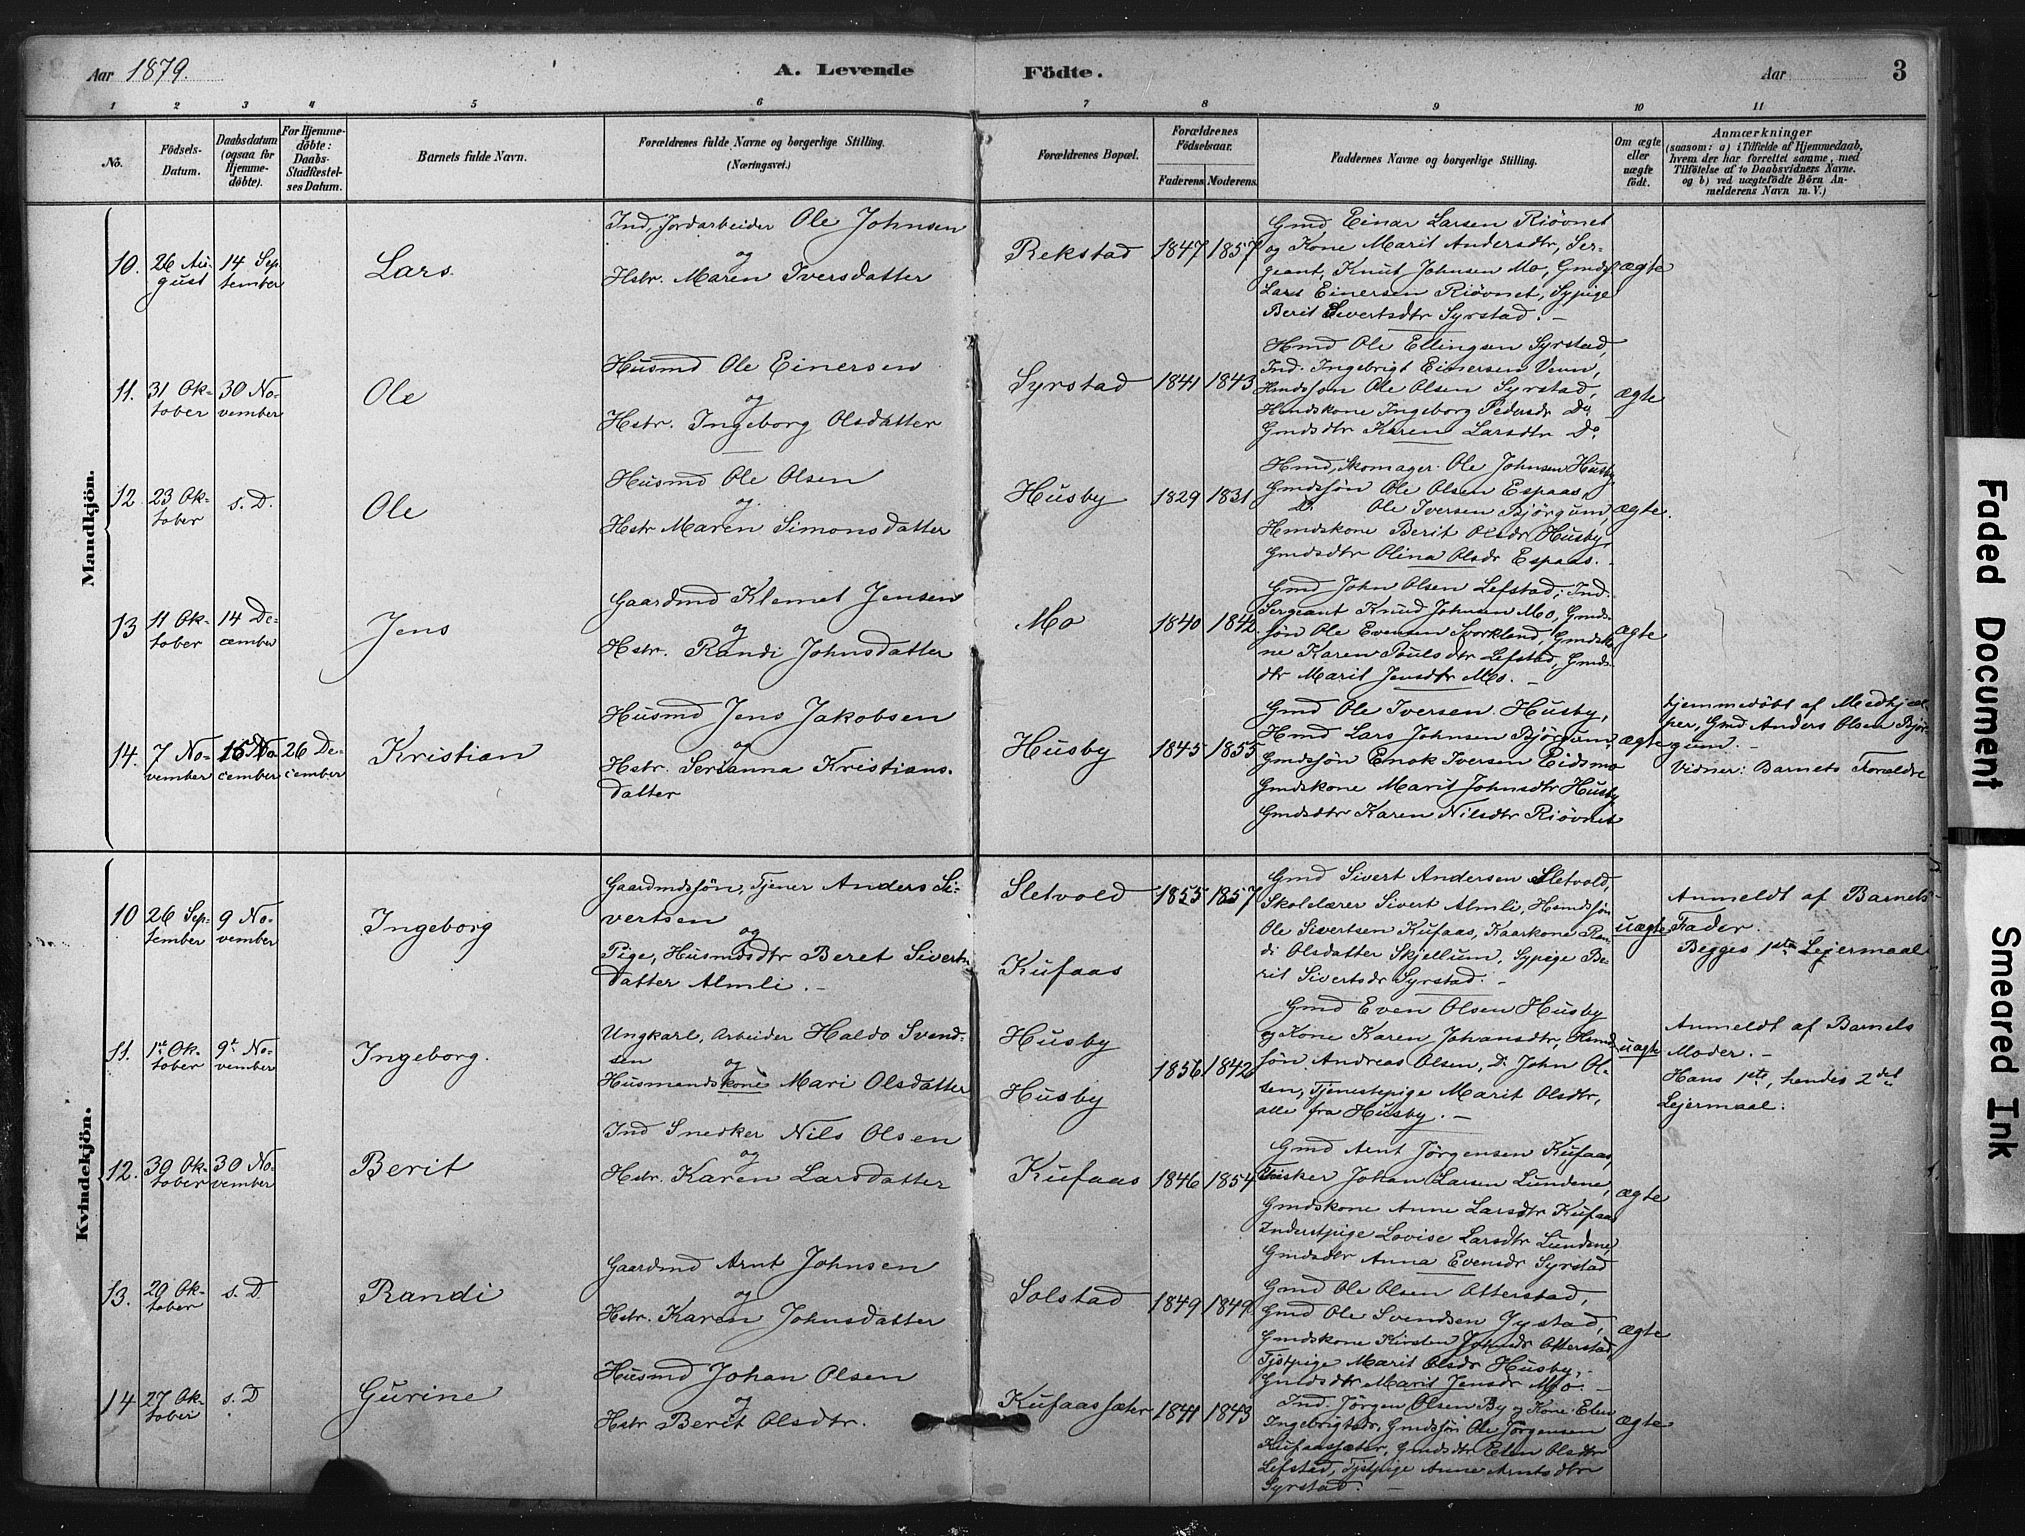 Aar 1879.
A. Levende Födte.
Aar
3
1 2 3 4 5 6 7 8 9 10 11
No.
Födsels-Datum.
Daabsdatum (ogsaa for Hjemme-döbte).
For Hjemme-döbte: Daabs-Stadfæstel-ses Datum.
Barnets fulde Navn.
Forældrenes fulde Navne og borgerlige Stilling.
(Næringsvei.)
Forældrenes Bopæl.
Forældrenes Födselsaar.
Faderens Moderens
Faddernes Navne og borgerlige Stilling.
Om ægte eller uægte födt.
Anmærkninger
(saasom: a) i Tilfælde af Hjemmedaab,
hvem der har forrettet samme, med
Tilföielse af to Daabsvidners Navne.
og b) ved uægtefödte Börn An-
melderens Navn m. V.)
Mandkjön.
10. 26 August 14 September Lars
Ind, Jordarbeider Ole Johnsen
og
Hstr. Maren Iversdatter
Rekstad 1847 1857
Gmd Einar Larsen Riövnet
og Kone Marit Andersdtr, Ser-
geant, Knut Johnsen Mo, Gmdsf
Lars Einersen Riövnet, Sypige
Berit Sivertsdtr Syrstad. -
ægte
11. 31 Oktober 30 November Ole
Husmd Ole Einersen
og
Hstr. Ingeborg Olsdatter
Syrstad 1841 1843
Hmd Ole Ellingsen Syrstad,
Ind. Ingebrigt Einersen Veun,
Hmdssøn Ole Olsen Syrstad,
Hmdskone Ingeborg Pedersdr Do
Gmdsdtr Karen Larsdtr Do
ægte
12 23 Oktober s. D. Ole
Husmd Ole Olsen
og
Hstr Maren Simonsdatter
Husby 1829 1831
Hmd, Skomager Ole Johnsen Husby
Gmdsjön Ole Olsen Espaas,
D. Ole Iversen Bjørgum,
Hmdskone Berit Olsdr Husby,
Gmdsdtr Olina Olsdr Espaas. -
ægte.
13 11 Oktober 14 December Jens
Gaardmd Klemet Jensen
og
Hstr. Randi Johnsdatter
Mo 1840 1842
Gmd John Olsen Lefstad, Ind.
Sergeant Knud Johnsen Mo, Gmds-
jön Ole Evensen Svorkland, Gmdsko
ne Karen Poulsdtr Lefstad, Gmds-
dtr Marit Jensdtr Mo. -
ægte
14. 7 November 15 December 26 December Kristian
Husmd Jens Jakobsen
og
Hstr. Serianna Kristians-
datter
Husby 1845 1855
Gmd Ole Iversen Husby,
Hmd Lars Johnsen Bjørgum,
Gmdsjön Enok Iversen Eidsmo
Gmdskone Marit Johnsdtr Husby
Gmdsdtr Karen Nilsdtr Riövnet
ægte
hjemmedøbt af Medhjæl-
per, Gmd Anders Olsen Bjør-
gum. -
Vidner: Barnets Forældre
Kvindekjön.
10 26 September 9 November Ingeborg
Gaardmdssjön, Tjener Anders Si-
vertsen
og
Pige, Husmdsdtr Beret Siverts-
datter Almli. -
Sletvold
Kufaas
1855 1857
Gmd Sivert Andersen Sletvold,
Skolelærer Sivert Almli, Hsmdsjön
Ole Sivertsen Kufaas, Kaarkone Ran-
di Olsdatter Skjellum, Sypige Be-
rit Sivertsdr Syrstad. -
uægte
Anmeldt af Barnets
Fader.
Begges 1ste Lejermaal
11. 1st Oktober 9de November Ingeborg.
Ungkarl, Arbeider Haldo Svend-
sen
og
Husmandskone Mari Olsdatter
Husby
Husby
1856 1842
Gmd Even Olsen Husby
og Kone Karen Johansdtr, Hsmd-
søn Andreas Olsen, D. John Ol-
sen, Tjenestepige Marit Olsdtr,
alle fra Husby. -
uægte
Anmeldt af Barnets
Moder. -
Hans 1ste, hendes 2det
Lejermaal.
12. 30 Oktober 30 November Berit
Ind Snedker Nils Olsen
og
Hstr. Karen Larsdatter
Kufaas 1846 1854
Gmd Arnt Jørgensen Kufaas,
Johan Larsen Lundene,
Gmdskone Anne Larsdtr Kufaas
Inderstpige Lovise Larsdtr Lundene,
Gmdsdtr Anna Evensdr Syrstad
ægte
13. 20 Oktober s. D Randi
Gaardmd Arnt Johnsen
og
Hstr. Karen Johnsdatter
Solstad 1849 1849
Gmd Ole Olsen Otterstad,
Gmd Ole Svendsen Gystad,
Gmdskone Kirsten Johnsdr Otterstad,
Tjstpige Marit Olsdr Husby,
Gmdsdtr Marit Jensdr Mo. -
ægte
14 27 Oktober s. D Gurine
Husmd Johan Olsen
og
Hstr Berit Olsdtr.
Kufaassæter 1841 1843
Ind. Jörgen Olsen By og Kone Elen
Ingebrigtsdr, Gmdsjön Ole Jørgensen
Kufaassæter, Gmdsdtr Elen Olsdtr
Lefstad, Tjstpige Anne Arntsdtr
Syrstad.
ægte
Faded Document
Smeared Ink